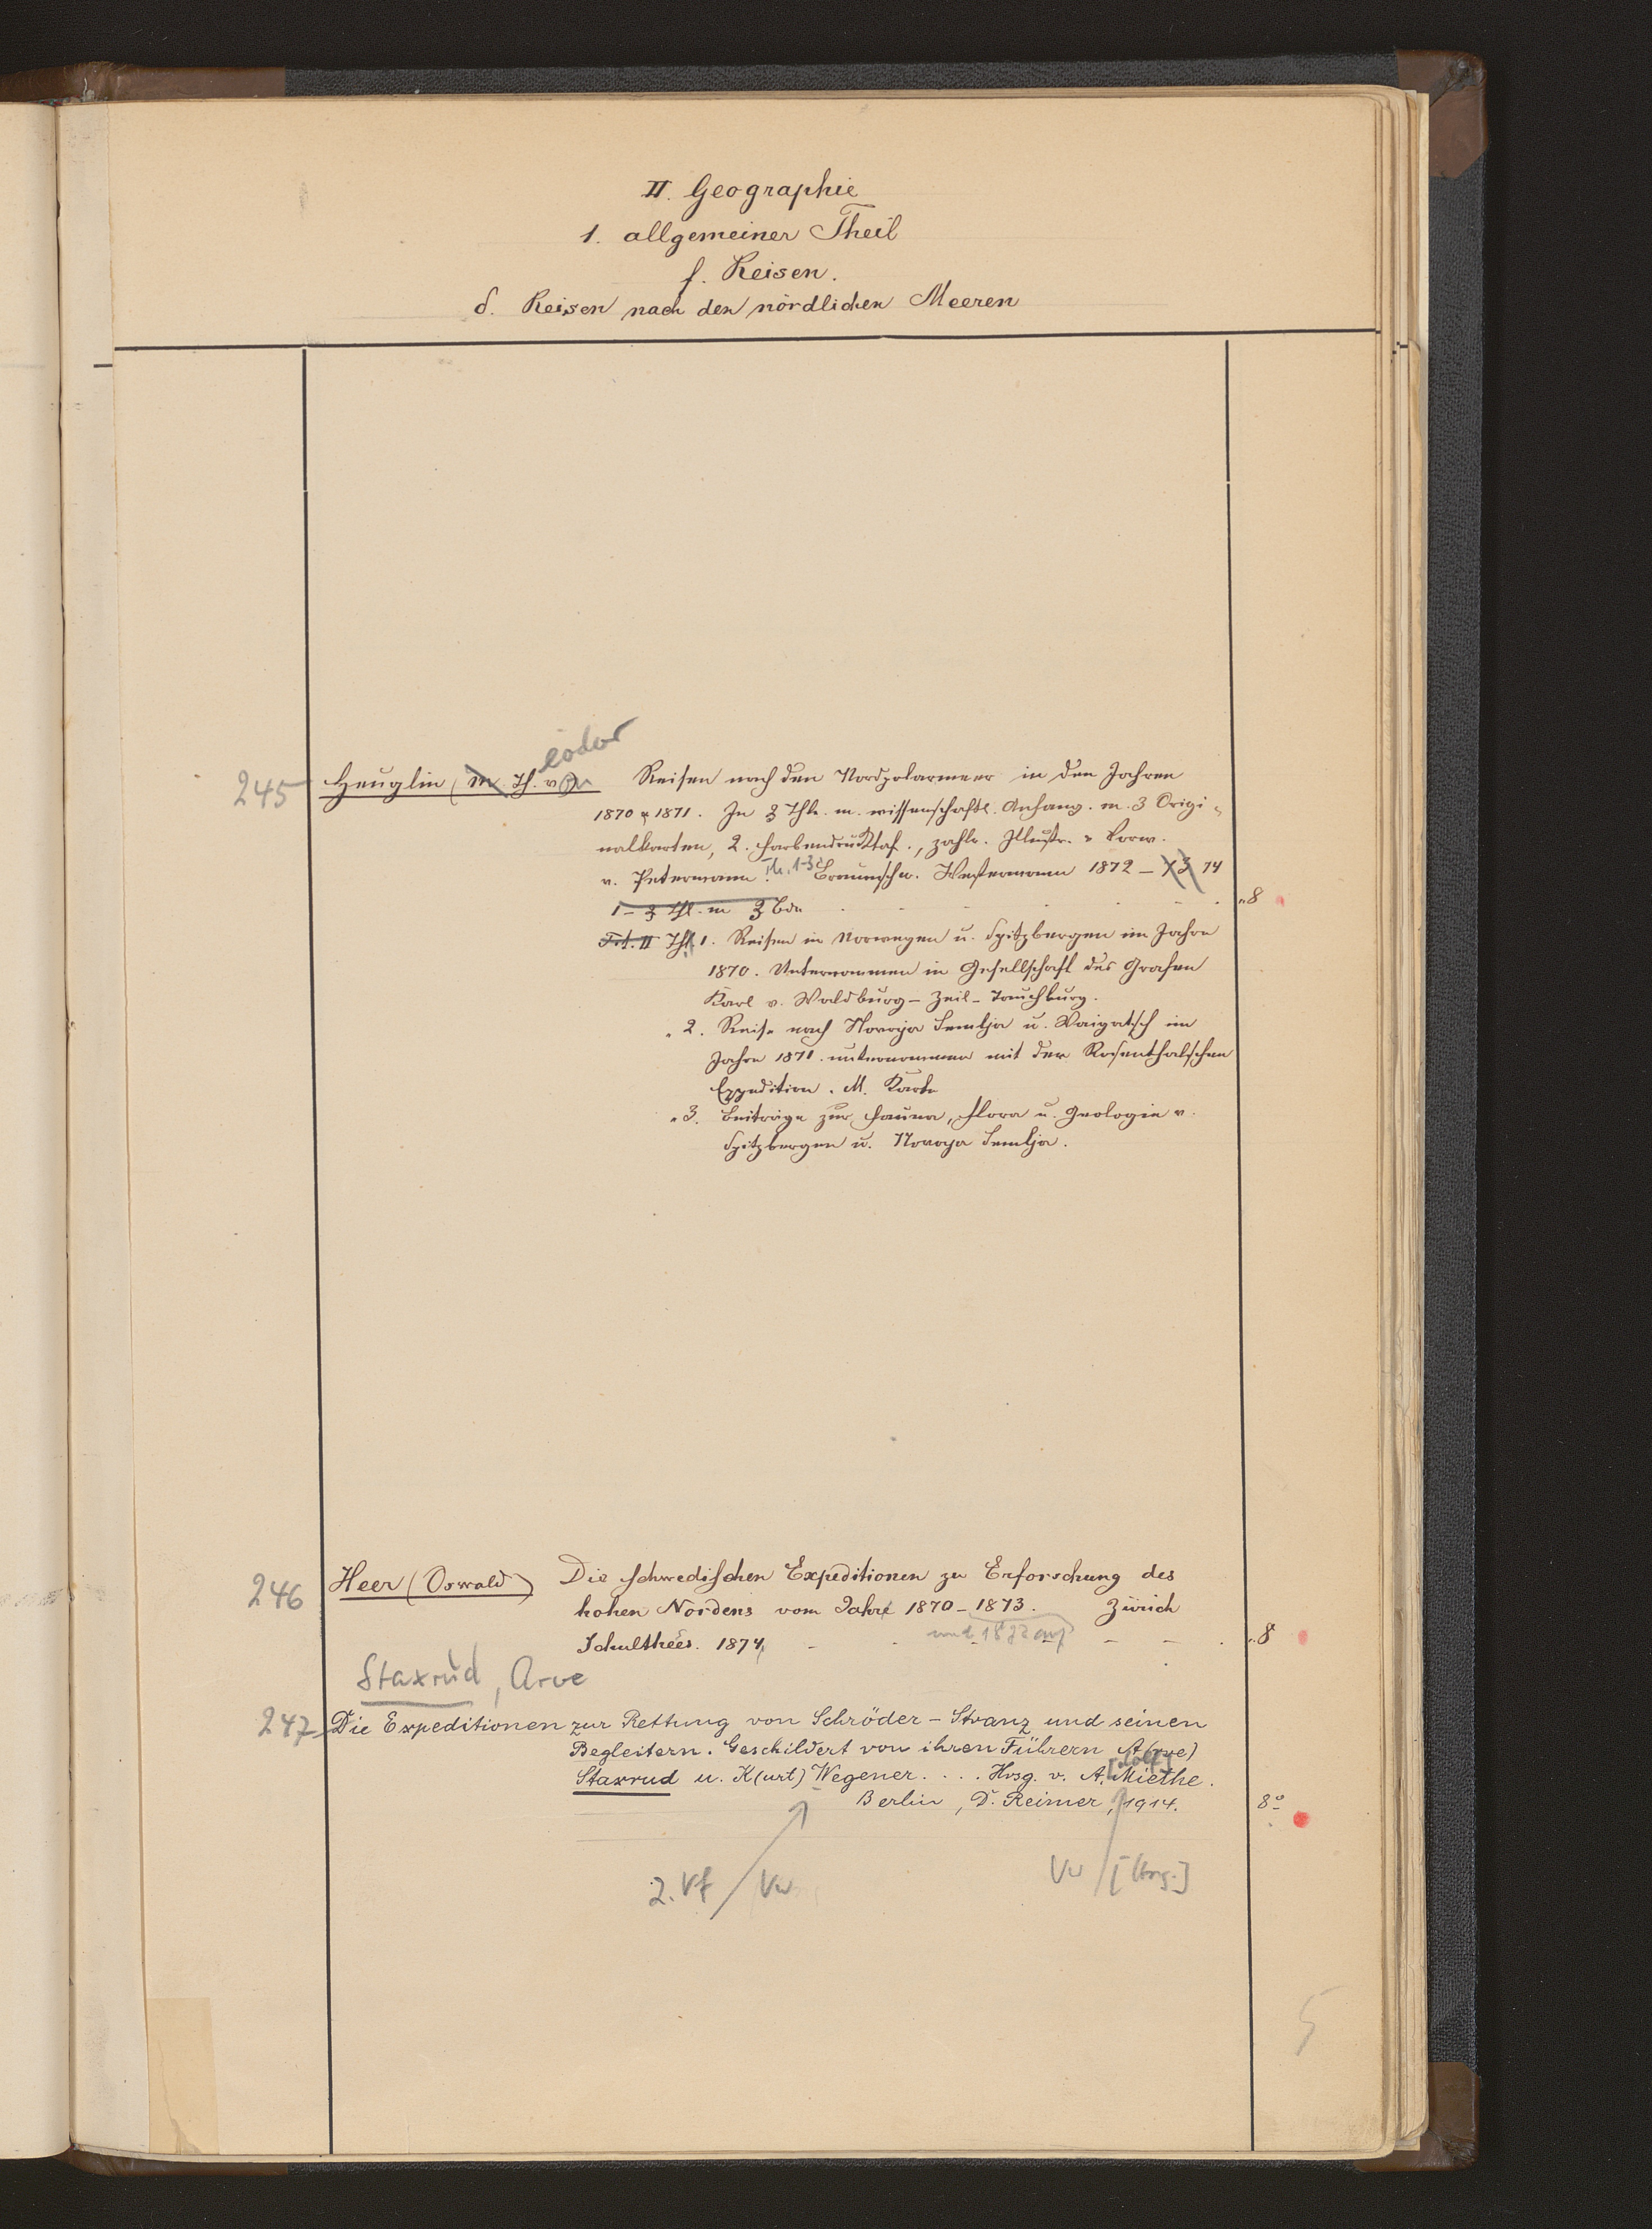 II. Geographie
1. allgemeiner Theil
f. Reisen.
δ. Reisen nach den nördlichen Meeren
eodor
245 Heuglin (M. Th. von) Reisen nach den Nordpolarmeer in den Jahren
1870 u 1871. In 3 Thle. m. wissenschaftl. Anhang. m. 3 Origi-
nalkarten, 2. Farbendrucktaf., zahlr. Illustr. u Vorw.
v. Petermann. Th. 1-3 Braunschw. Westermann 1872 – 73 74
1 – 3 Thl. in 3 Bdn „8
Tit. II Thl 1. Reisen in Norwegen u. Spitzbergen im Jahre
1870. Unternommen in Gesellschaft des Grafen
Karl v. Waldburg-Zeil-Trauchburg.
„ 2. Reise nach Novaja Semlja u. Waigatsch im
Jahre 1871. unternommen mit der Rosenthalschen
Expedition. M. Karte
„ 3. Beiträge zur Fauna, Flora u. Geologie v.
Spitzbergen u. Novaja Semlja.
246 Heer (Oswald) Die schwedischen Expeditionen zu Erforschung des
hohen Nordens vom Jahre 1870 – 1873. Zürich
Schulthess. 1874 und 1872 auf „8
Staxrud, Arve
247 Die Expeditionen zur Rettung von Schröder-Stranz und seinen
Begleitern. Geschildert von ihren Führern A(rve)
Staxrud u. K(urt) Wegener. . . . Hrsg. v. A.[dolf] Miethe.
Berlin, D. Reimer, 1914. 8°
2. Vf / Vw
Vw / [Hrsg.]
5